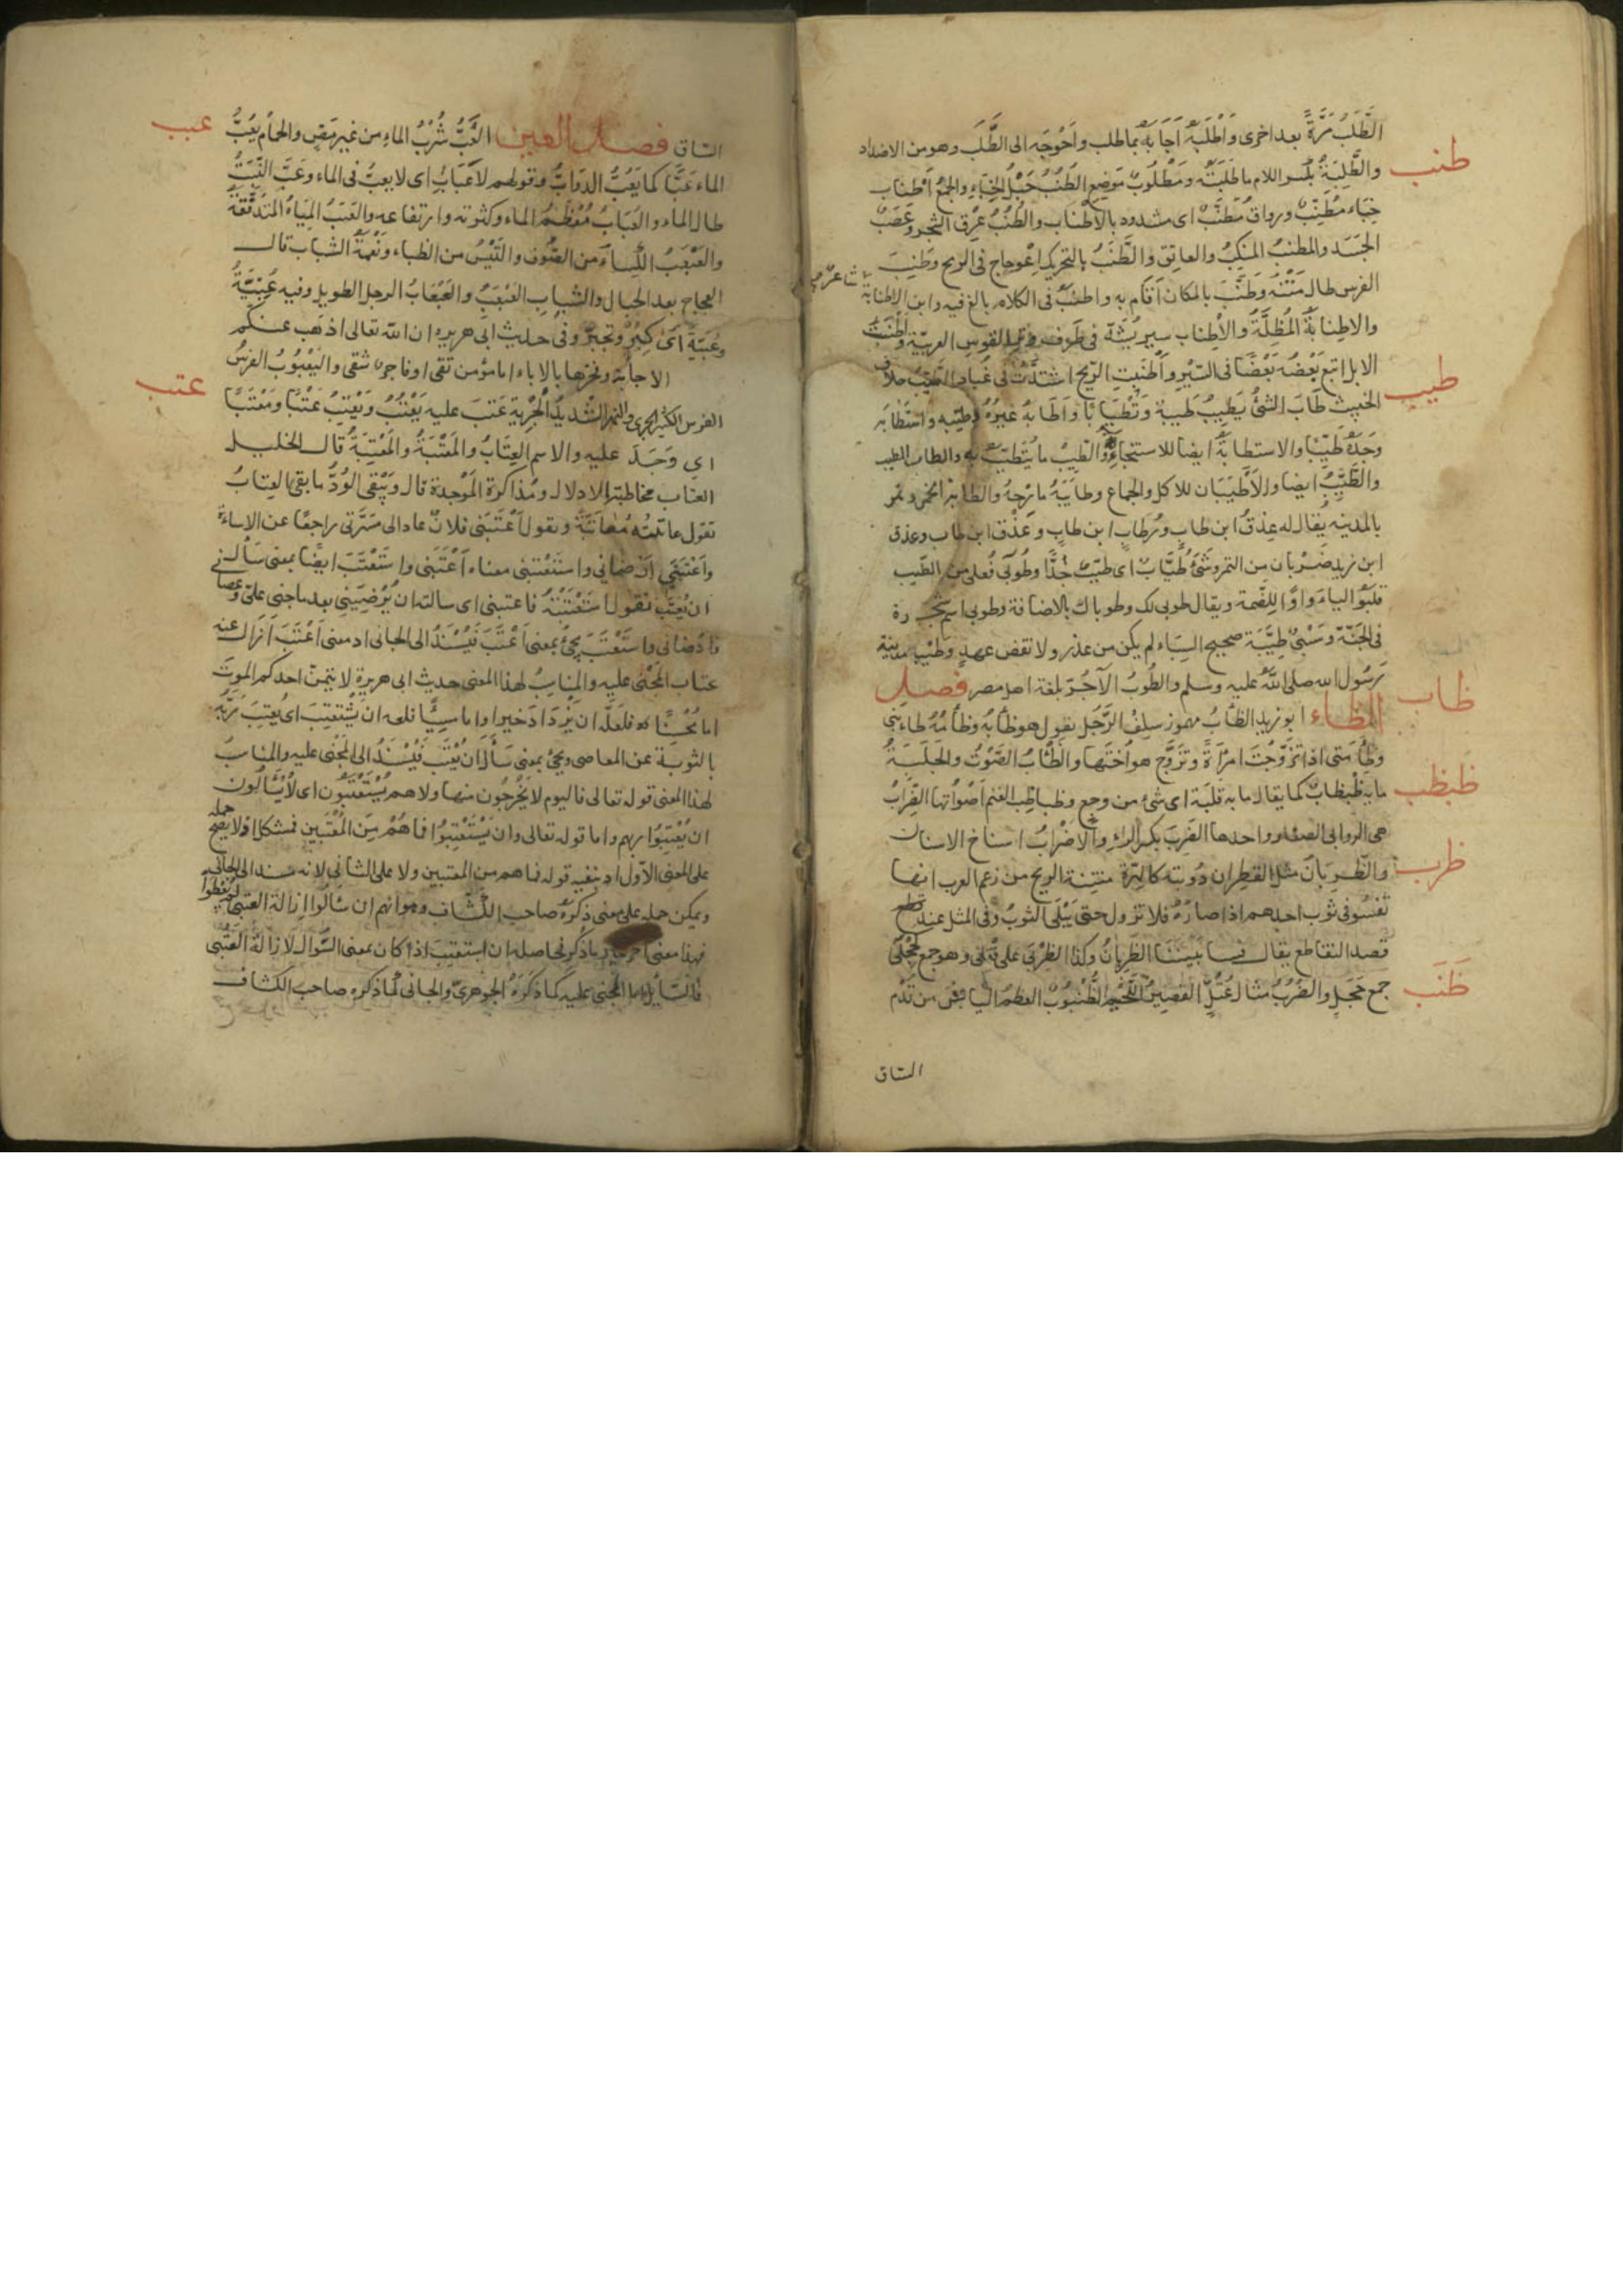 الطَّلَبُ مَرَّةً بعد اخرى وَاَطْلَبَهُ اَجَابَهُ بما طلب واَحْوَجَه الى الطَّلَب وهو من الاضداد
طنب
والطَّلِبَةُ بكسر اللام ما طَلَبْتَه ومَطْلُوبٌ مَوضِع الطُنُبُ حَبْلُ الخِبَاءِ والجمعُ اَطْناب
خِبَاء مُطَنَّبٌ ورواقٌ مُطَنَّبٌ اى مشدود بالاَطْنَاب والطُنُبُ عِرْق الشجر وعَصَبُ
الجَسَد والمطنب المَنكِبُ والعاتِق والطَّنَبُ بالتحريك اِعْوجاج فى الرمح وطَنِبَ
الفرس طال مَتْنُه وطَنَّبَ بالمكان اَقام به واطنب فى الكلام بالغ فيه وابن الاطنابة
شاعر
والاطنابةُ المُظِلَّةُ والاِطناب سير يُشَدُّ فى طرف وتر القوس العربيّة واَطْنَبَتْ
الابل اتبع بَعْضُه بَعْضًا فى السَّيْر واَطْنَبَتِ الرِّيحُ اشتدَّتْ فى غُبار الطَّيِّبُ خلاف
طيب
الخبيث طَابَ الشئُ يَطِيبُ طَيبةً وتَطْيَابًا واَطَابَهُ غيرُهُ وطيّبه واستَطَابَه
وَجَدَهُ طَيِّبًا والاستطابةُ ايضا للاستنجاءِ والطِّيبُ ما يُتَطَيَّبُ به والطاب الطيب
والطَّيِّبُ ايضا والاَطْيَبَان للاكل والجماع وطايَبَهُ مازحهُ والطابة الخمر وتمر
بالمدينه يقال له عِذقُ ابن طاب ورُطاب ابن طابٍ وعَذْق ابن طاب وعذق
ابن زيد ضَرْبان من التمر وشئٌ طُيَّابٌ اى طيّبٌ جدًّا وطُوبَى فُعلى من الطّيب
قلبُوا الياءَ واوًا لِلضّمة ويقال طوبى لك وطوباك بالاضافة وطوبى اسم شجرة
فى الجَنّة وسَبْىٌ طِيَبَة صحيح السِّبَاء لم يكن من غدرٍ ولا نقض عهدٍ وطَيْبة مدينة
رَسُول الله صلى اللهُ عليه وسلم والطُوبُ الآجُرّ بلغة اهل مصر فصل
ظاب
الظاء ابو زيد الظأبُ مهموز سِلفُ الرَّجُل يقول هو ظأبُهُ وظأمُهُ
اذا تَزَوَّجْتَ امرأةً وتَزَوَّج هو اُختَها والظَّأبُ الصَّوْتُ والجَلَبَةُ
ظبظب
ما به ظَبْظابٌ كما يقال ما به قَلَبَة اى شئ من وجع وظباظِب الغنم اَصْواتها الظِّرَابُ
هى الروابى الصغار واحدها الظَرِب بكسر الراء والاَظْرابُ اسناخ الاسنان
ظرب
والظَّرِبَان مثل القطِران دُوَيبّه كالهِرّة منتِنة الريح من زعم العرب انها
تَفسُو فى ثوب احدهم اذا صادَهُ فلا تزول حتى يَبْلَى الثوبُ وفى المثل عند
قصد التقاطع يقال فَسا بَيْنَنَا الظَّرِبانُ وكذا الظِرْبَى على فِعْلَى وهو جمع كحِجْلَى
جمع حَجَل والظُرُبُّ مثال عُتُلٍّ القصيرُ اللَّحِيم الظُّنْبُوبُ العظم اليابِسُ من قُدُم
ظنب
الساق
الساق فصل العين العَبُّ شُرْبُ الماءِ من غير مَصٍّ والحمام يَعُبُّ
عبب
الماء عَبًّا كما يَعُبُّ الدَوابُّ وقولهم لاَ عَبَابِ اى لا يعبّ فى الماء وعَبَّ النَّبتُ
طال الماء والعُبَابُ مُعْظَمُ الماء وكثرته وارتفاعه والعُبَبُ المِيَاهُ المتدفّقةُ
والعَبْعَبُ الكِساءُ من الصُّوف والتَّيْسُ من الظباء ونَعْمَةُ الشباب قال
العجاج بعد الجمال والشبابِ العَبْعَبُ والعَبْعَابُ الرجل الطويل وفيه عُبِّيَّةٌ
وعِبِّيَّةٌ اى كِبْرٌ وتَجَبّرٌ وفى حديث ابى هريره ان الله تعالى اذهب عنكم
الفرس الكثير الجرى والنهر الشديدُ الجِرْيةِ عَتَبَ عليه يَعْتُبُ ويَعْتِبُ عَتْبًا ومَعْتَبًا
عتب
اى وَجَدَ عليه والاسم العِتَابُ والمَعْتَبَةُ والمَعْتِبَةُ قال الخليل
العتاب مخاطبة الادلال ومذاكرة المَوْجدة قال ويَبْقَى الوُدُّ ما بقى العِتابُ
تقول عاتبتُه مُعاتَبَةً وتقول اَعْتَبَنى فلانٌ عاد الى مَسَرَّتى راجعًا عن الاساءة
واَعْتَبَنِى اَرْضانى واستَعْتَبَنى معناه اَعْتَبَنى واستَعْتَبَ ايضًا بمعنى سأل
ان يُعْتَب تقول استَعْتَبْتُهُ فاعتبنى اى سالته ان يُرْضِيَنِى بعد ما جنى علىّ
فارضانى واستَعْتَبَ يجئ بمعنى اَعْتَبَ فيُسْنَدُ الى الجانى اذ معنى اَعْتَبَ اَزَال عنه
عتاب المَجْنى عليه والمناسبُ لهذا المعنى حديث ابى هريرة لا يتمنّ احدكم الموتَ
اما مُحْسِنًا فلعَلّه ان يزدادَ خيرا واما مسيئًا فلعله ان يَسْتَعْتِبَ اى يُعتِبَ رَبَّهُ
بالتوبة عن المعاصى ويجئ بمعنى سَأَلَ ان يُعْتَبَ فيُسْنَدُ الى المَجْنى عليه والمناسبُ
لهذا المعنى قوله تعالى فاليوم لا يُخْرَجُون منها ولا هم يُسْتَعْتَبُون اى لا يُسْأَلُون
ان يُعْتِبُوا ربهم واما قوله تعالى وان يَسْتَعْتِبُوا فما هُمْ مِنَ المُعْتَبين فمشكل اذ لا يصح حمله
على المعنى الاوّل اذ ينفيه قوله فما هم من المعتبين ولا على الثانى لانه مسند الى الجانى
ويمكن حمله على معنى ذكرهُ صاحب الكَشّاف وهو انهم ان سَألُوا ازالة العُتْبَى لم يُعْطَوا
فهذا معنى آخر حاصله ان استعتب اذا كان بمعنى السُؤال لازالة العَتْبى
فالسّائِل اما المجنى عليه كما ذكرَهُ الجَوْهَرىّ والجانى كما ذكره صاحب الكشاف